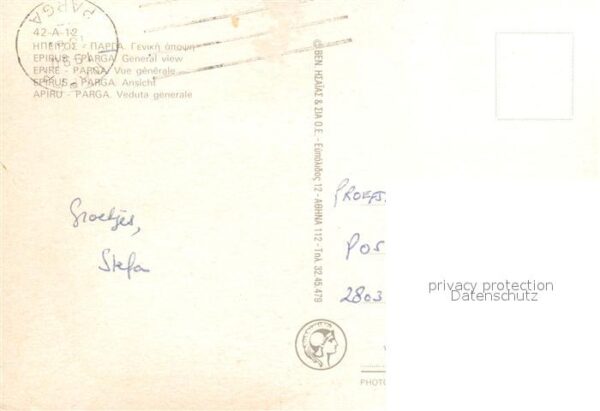 PARGA
42-A-12
ΗΠΕΙΡΟΣ - ΠΑΡΓΑ. Γενική άποψη
EPIRUS - PARGA. General view
EPIRE - PARGA. Vue générale
EPIRUS - PARGA. Ansicht
APIRU - PARGA. Veduta generale
© ΒΕΝ. ΗΣΑΪΑΣ & ΣΙΑ Ο.Ε. - Ευπόλιδος 12 - ΑΘΗΝΑ 112 - Τηλ. 32.45.479
Groetjes,
Stefan
PROEFS
POS
2803
privacy protection
Datenschutz
PHOTO